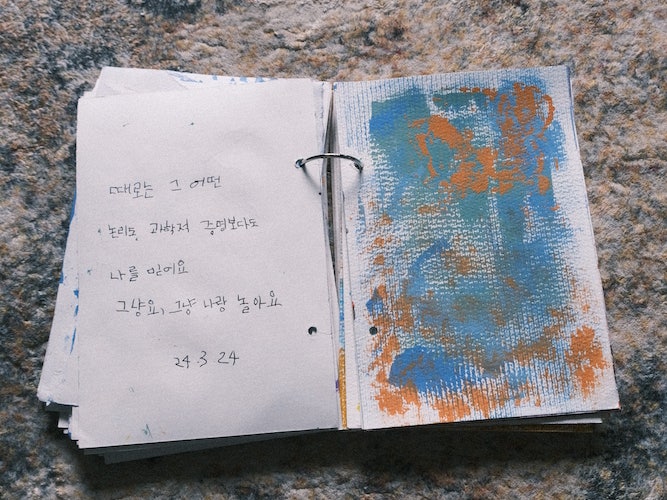 때로는 그 어떤
논리도, 과학적 증명보다도
나를 믿어요
그냥요, 그냥 나랑 놀아요
24.3.24